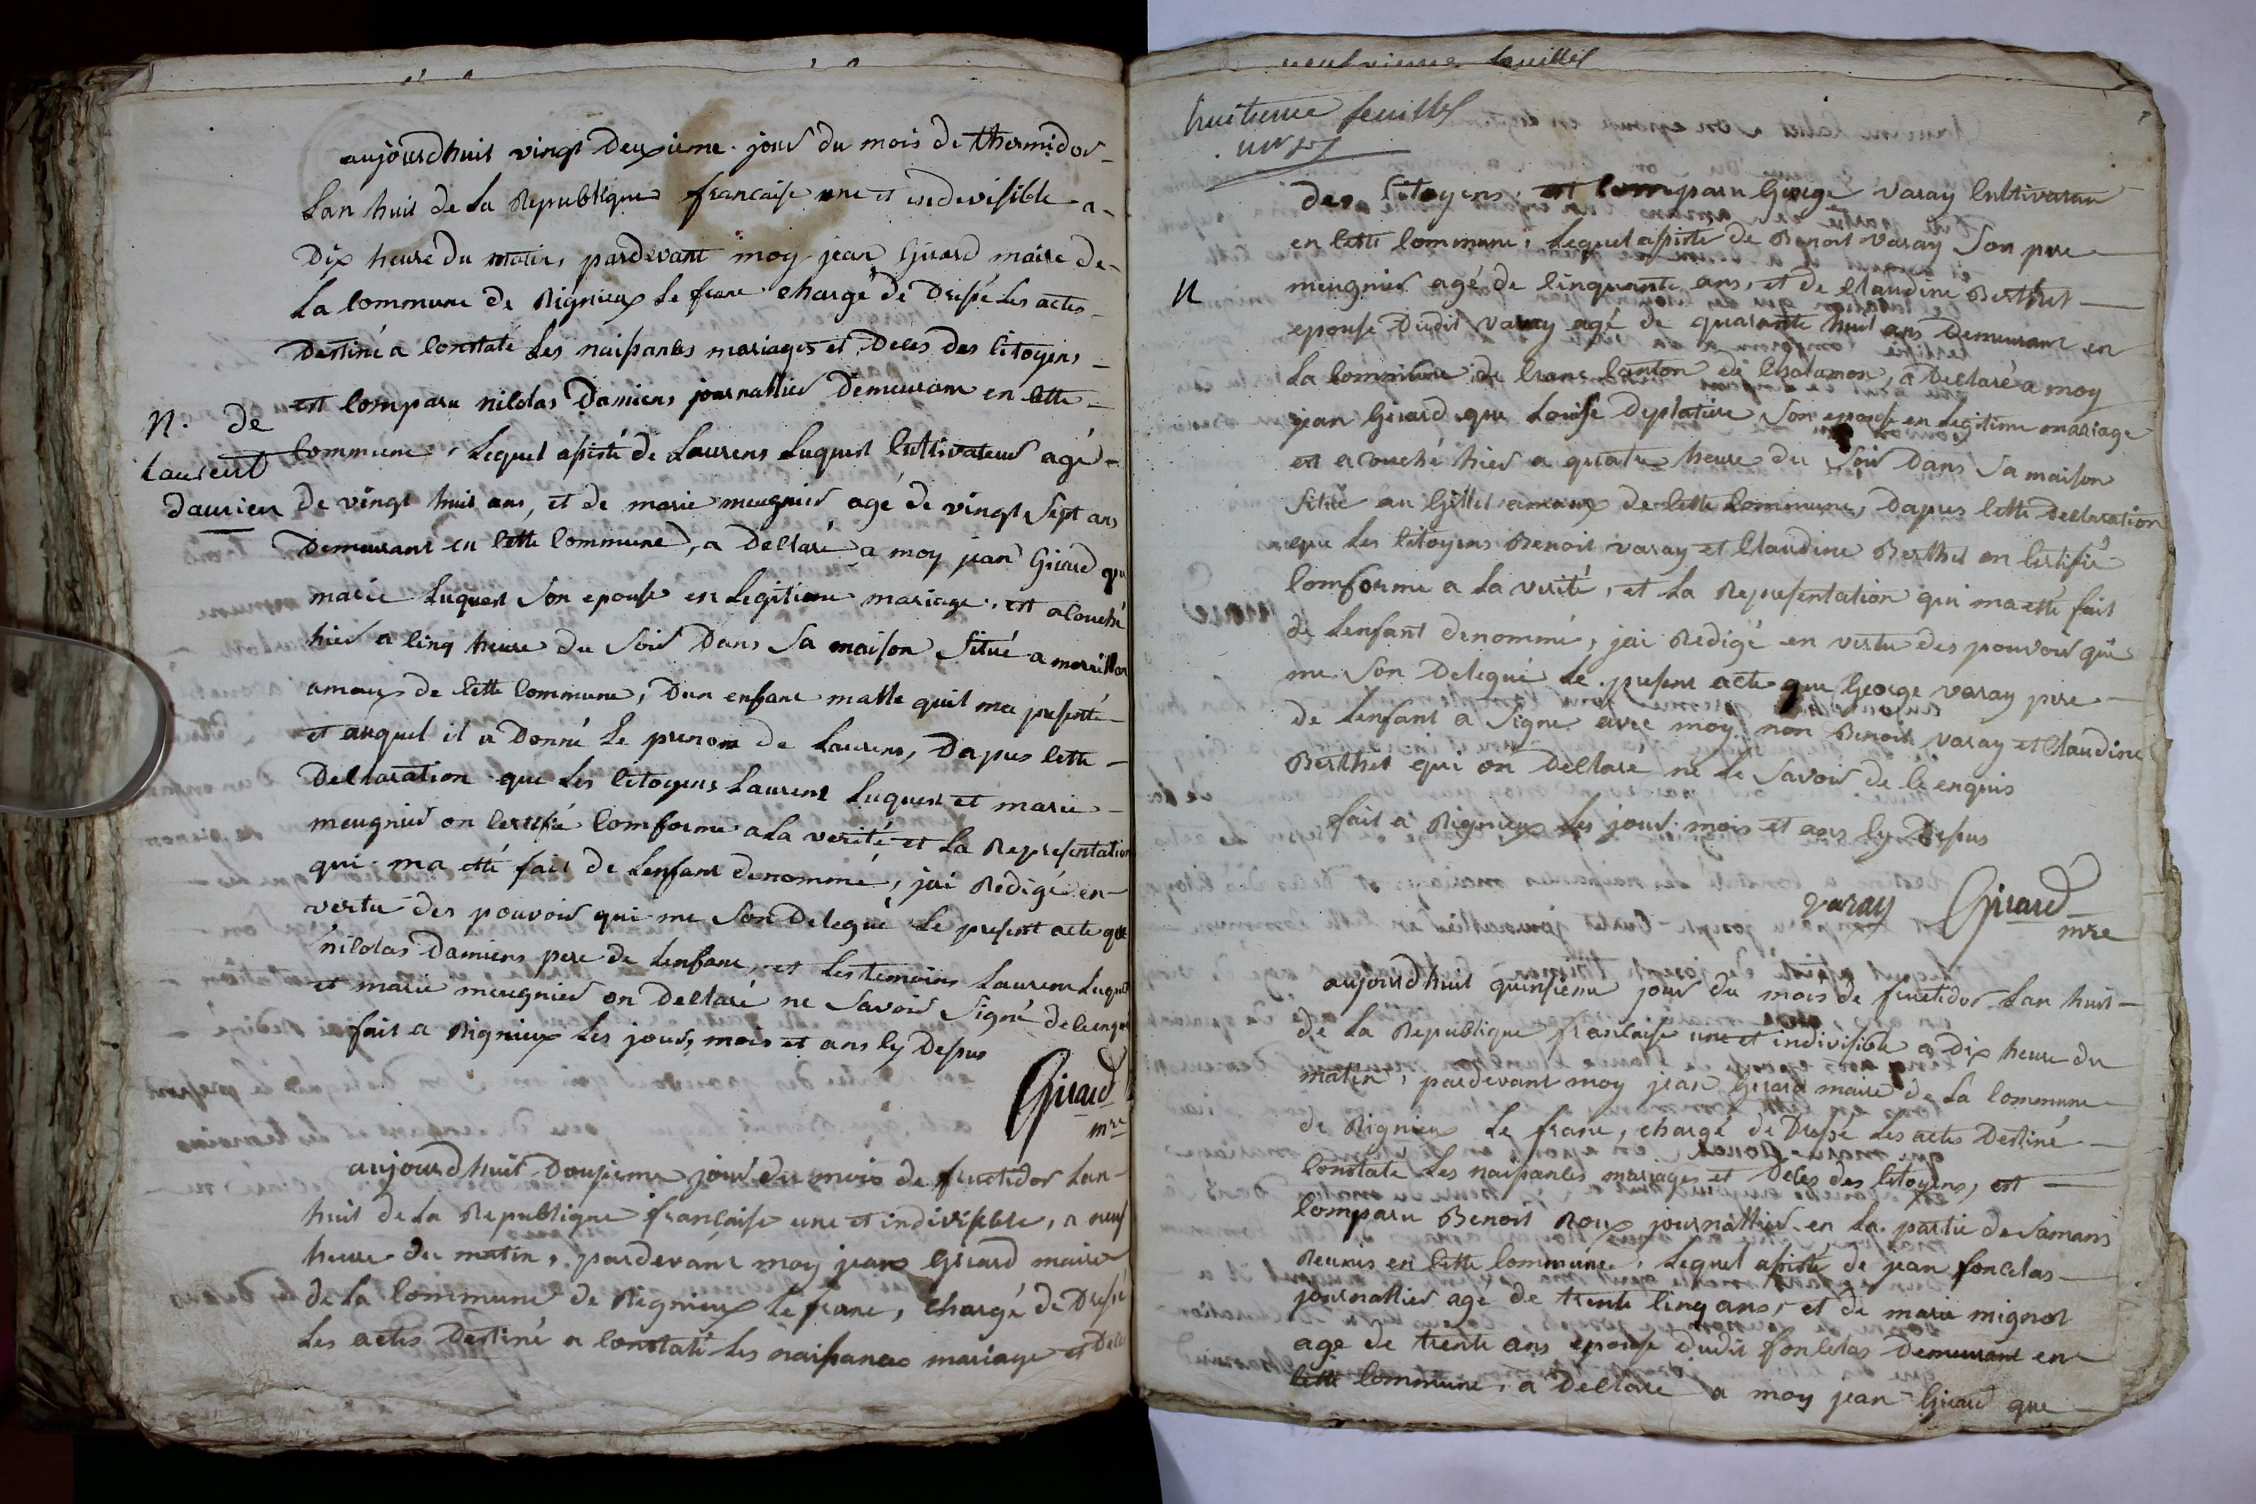 aujourdhuit vingt Deuxieme jour du mois de thermidor
Lan huit de La Republique francaise une et indivisible a
Dix heure du matin, pardevant moy jean Girard maire de
La Commune de Rignieux Le franc chargé de Dressé Les actes
Destiné a Constaté Les naissances mariages et Decés des Citoyens
est Comparu nicolas Damiens journallier Demeurant en Cette
N. de
Laurent
damien
Commune, Lequel assisté de Laurens Luquet Cultivateur agé
de vingt huit ans, et de marie meugnier agé de vingt Sept ans
Demeurant en Cette Commune, a Declaré a moy jean Girard qu
marie Luquet Son epouse en Legitime mariage, est acouché
hier a Cinq heure du Soir Dans Sa maison Situé a
amaux de Cette Commune, Dun enfant malle quil ma presenté
et auquel il a Donné Le prenom de Laurens, Dapres Cette
Declaration que Les Citoyens Laurent Luquet et marie
meugnier on Certifié Comforme a La verité et La Representation
qui ma eté fait de Lenfant denommé, jai Redigé en
vertu des pouvoir qui me Son Delegué Le present acte que
nicolas Damiens pere de Lenfant, et Les temoins Laurent Luquet
et marie meugnier on Declaré ne Savoir Signé de Cenquis
fait a Rignieux Les jour, mois et ans Cy Dessus
Girard
mre
aujourdhuit Douzieme jour du mois de fructidor Lan
huit de La Republique francaise une et indivisible, a neuf
heure du matin, pardevant moy jean Girard maire
de La Commune de Rignieux Le franc, Chargé de Dressé
Les actes Destiné a Constaté Les naissances mariage et Deces
neufvieme feuillet
huitieme feuillet
des Citoyens, est Comparu George varay Cultivateur
en Cette Commune, Lequel assisté de Benoit varay Son pere
N
meugnier agé de Cinquante ans, et de Claudine Berthet
epouse Dudit varay agé de quarante huit ans Demeurant en
La Commune de Crans Canton de Chalamon, a Declaré a moy
jean Girard que Louise Deplatiere Son epouse en Legitime mariage
est acouché hier a quatre heure du Soir Dans Sa maison
Situé au amaux de Cette Commune, Dapres Cette Declaration
que Les Citoyens Benoit varay et Claudine Berthet on Certifié
Comforme a La verité, et La Representation qui ma eté fait
de Lenfant denommé, jai Redigé en vertu des pouvoir qui
me Son Delegué Le present acte que George varay pere
de Lenfant a Signe avec moy non Benoit varay et Claudine
Berthet qui on Declaré ne Le Savoir de Ce enquis
fait a Rignieux Les jour mois et ans Cy Dessus
varay Girard
mre
aujourdhuit quinsieme jour du mois de fructidor Lan huit
de La Republique francaise une et indivisible a Dix heure du
matin, pardevant moy jean Girard maire de La Commune
de Rignieux Le franc, chargé de Dressé Les actes Destiné
Constaté Les naissances mariages et Deces des Citoyens, est
Comparu Benoit Roux journallier en La partie de Samans
Reunis en Cette Commune, Lequel assisté de jean foncelas
journallier agé de trente Cinq ans, et de marie mignot
age de trente ans epouse dudit foncelas Demeurant en
Cette Commune, a Declare a moy jean Girard que